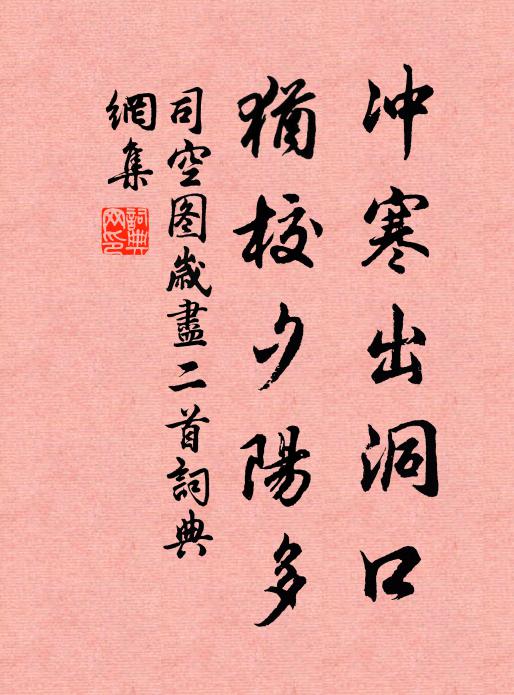 冲寒出洞口
猶校夕陽多
司空图歲盡二首詞典
網集
詞典網印